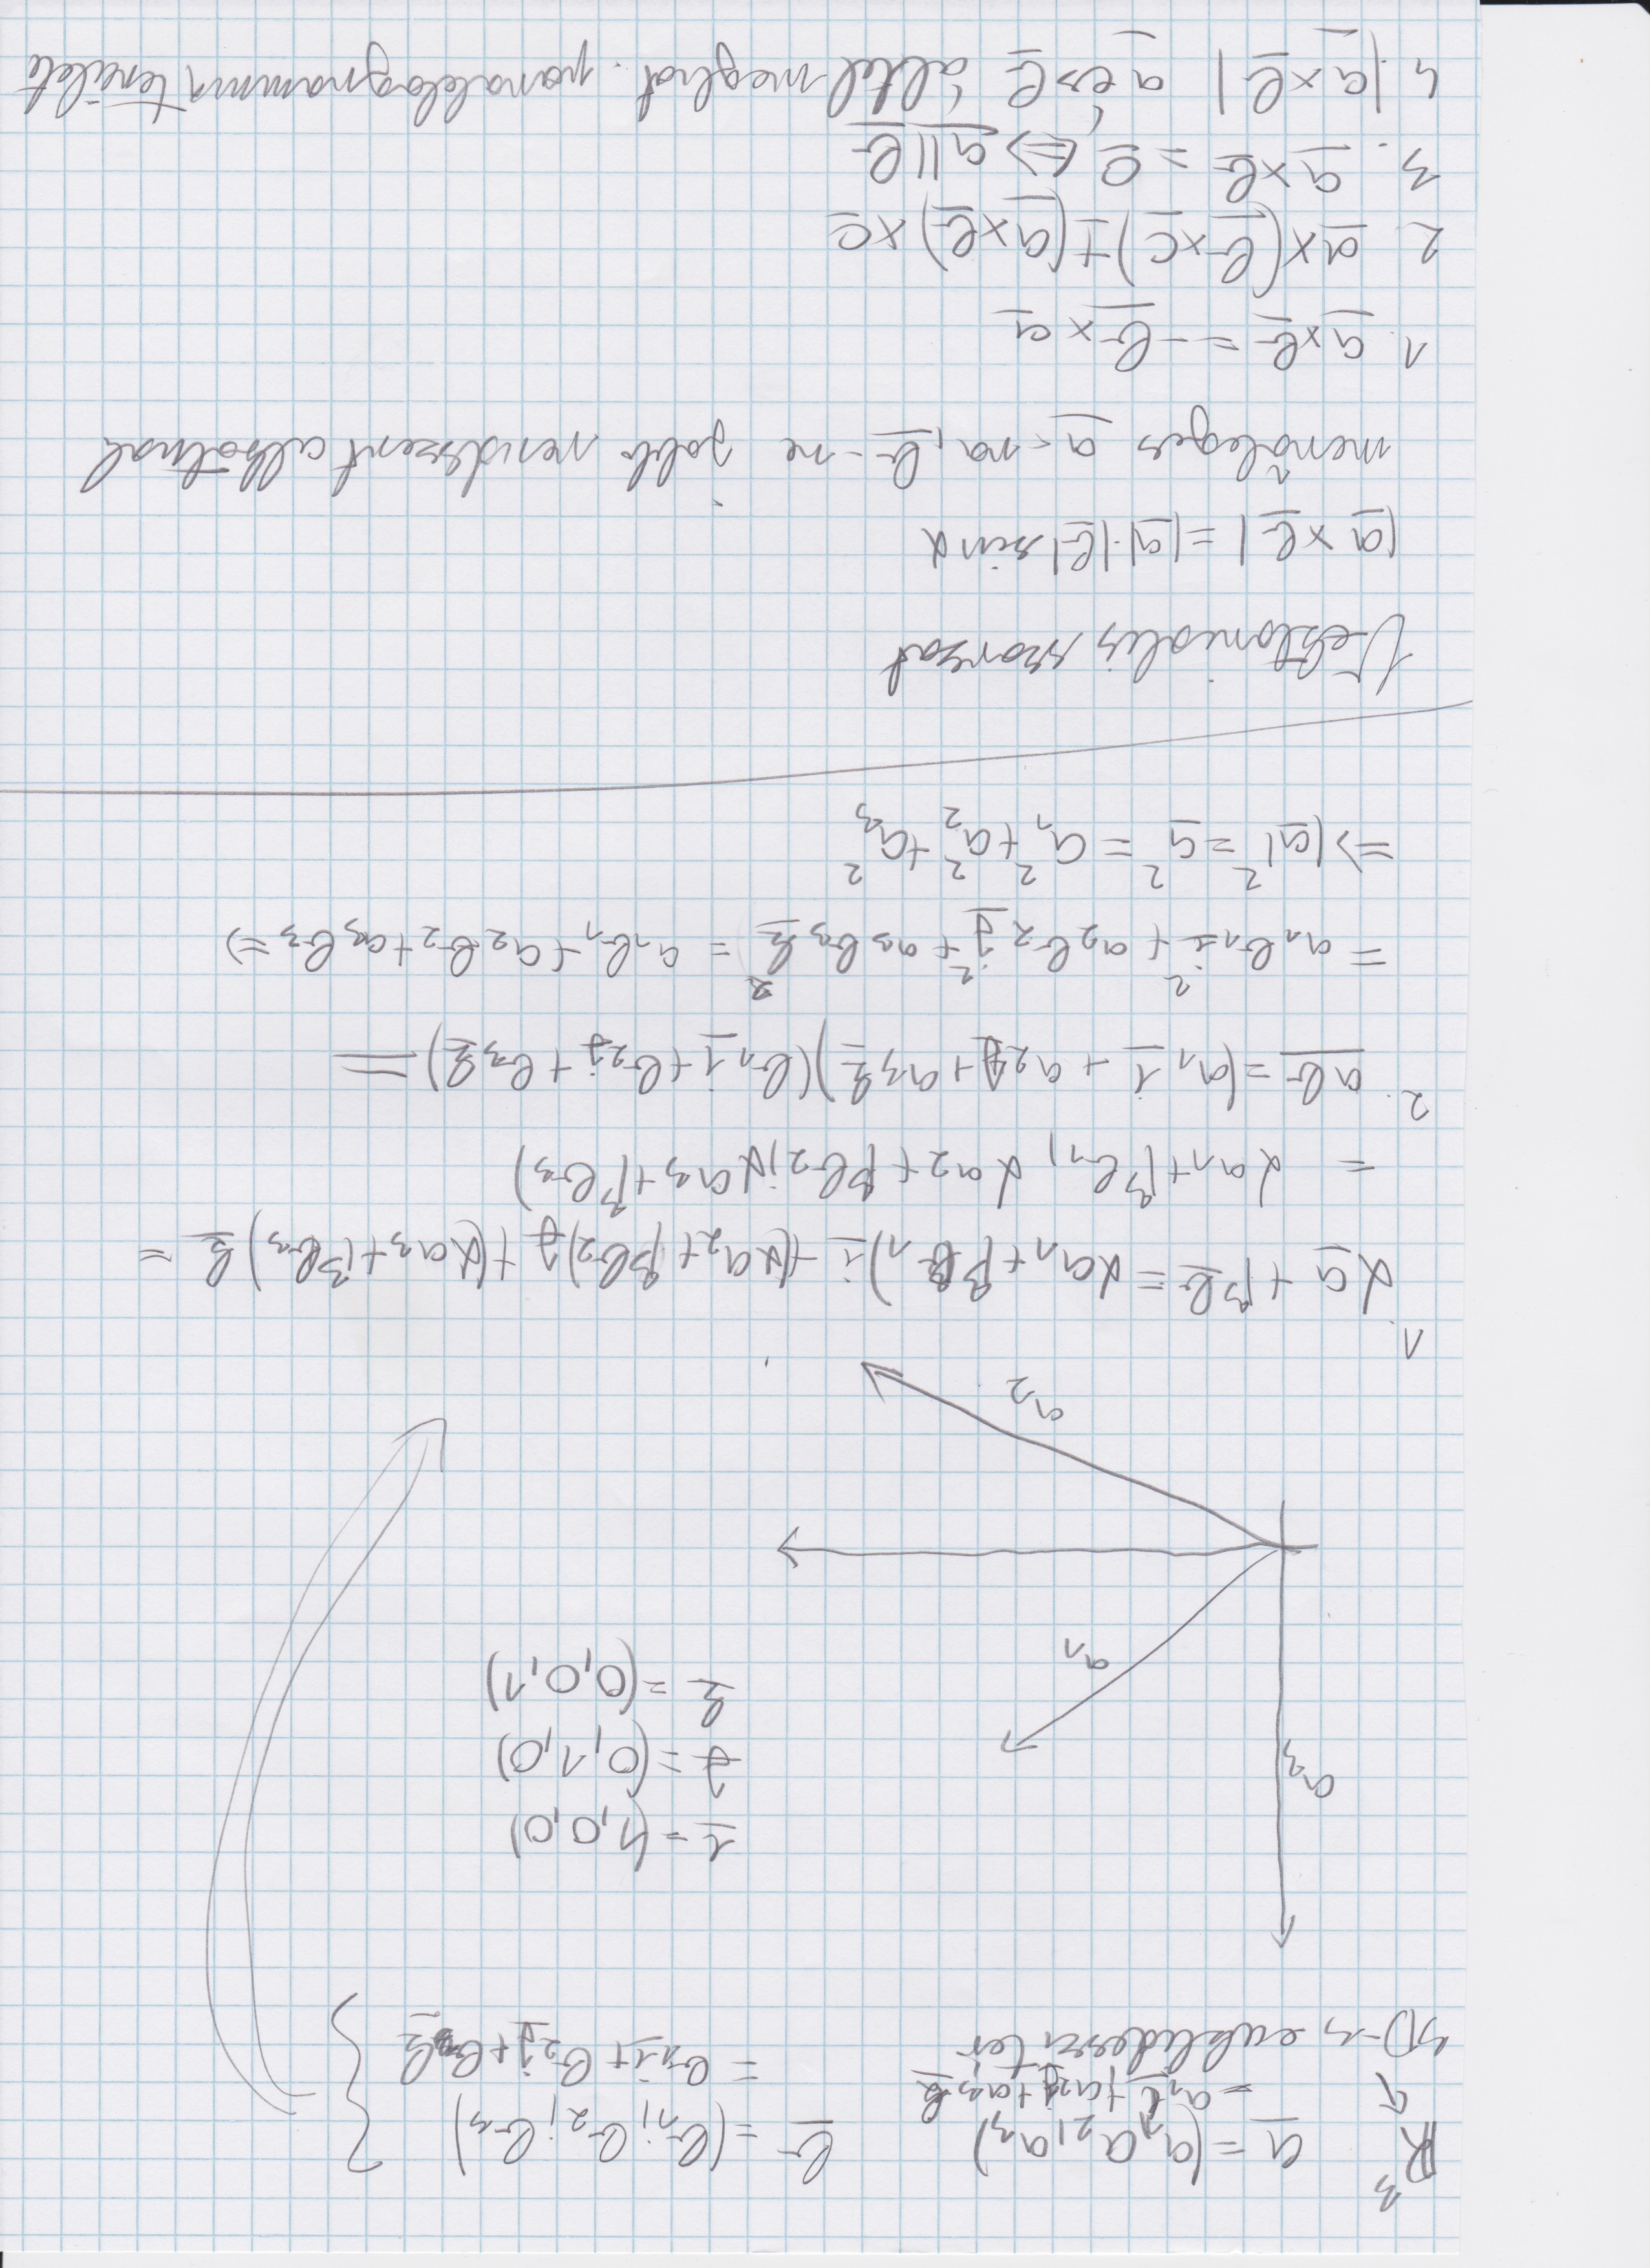 R³ a = (a₁, a₂, a₃) b = (b₁; b₂; b₃)
= a₁i + a₂j + a₃k = b₁i + b₂j + b₃k
3D-s euklideszi tér
i = (1,0,0)
j = (0,1,0)
k = (0,0,1)
a₃
a₁
a₂
1.
αa + βb = αa₁ + βb₁)i + (αa₂ + βb₂)j + (αa₃ + βb₃)k =
= αa₁ + βb₁; αa₂ + βb₂; αa₃ + βb₃)
2. ab = (a₁i + a₂j + a₃k)(b₁i + b₂j + b₃k) =
= a₁b₁i² + a₂b₂j² + a₃b₃k² = a₁b₁ + a₂b₂ + a₃b₃ ⇒
⇒ |a|² = a² = a₁² + a₂² + a₃²
Vektoriális szorzat
|a × b| = |a|·|b| sin α
merőleges a-ra, b-re jobb rendszert alkotnak
1. a × b = -b × a
2 a × (b × c) ≠ (a × b) × c
3. a × b = 0 ⇔ a || b
4. |a × b| a és b által meghat. paralelogramma területe